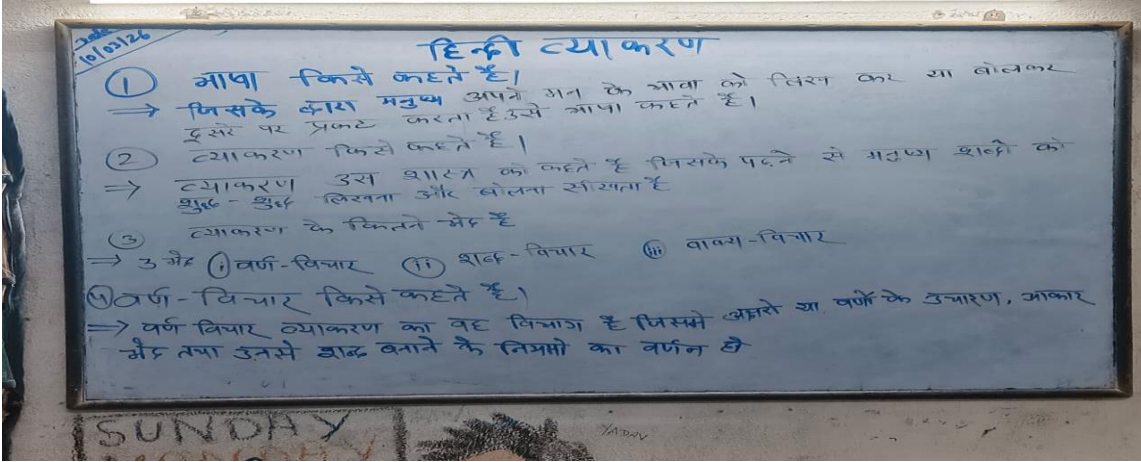 Date
10/03/26
हिन्दी व्याकरण
① भाषा किसे कहते है।
⇒ जिसके द्वारा मनुष्य अपने मन के भावो को लिख कर या बोलकर
दूसरे पर प्रकट करता है उसे भाषा कहते है।
② व्याकरण किसे कहते है।
⇒ व्याकरण उस शास्त्र को कहते है जिसके पढ़ने से मनुष्य शब्दो को
शुद्ध - शुद्ध लिखना और बोलना सीखता है
③ व्याकरण के कितने भेद है
→ 3 भेद ⓘ वर्ण-विचार ⓘⓘ शब्द-विचार ⓘⓘⓘ वाक्य-विचार
④ वर्ण-विचार किसे कहते है।
⇒ वर्ण विचार व्याकरण का वह विभाग है जिसमे अक्षरो या वर्णो के उचारण, आकार
भेद तथा उनसे शब्द बनाने के नियमो का वर्णन हो
SUNDAY
YADAV